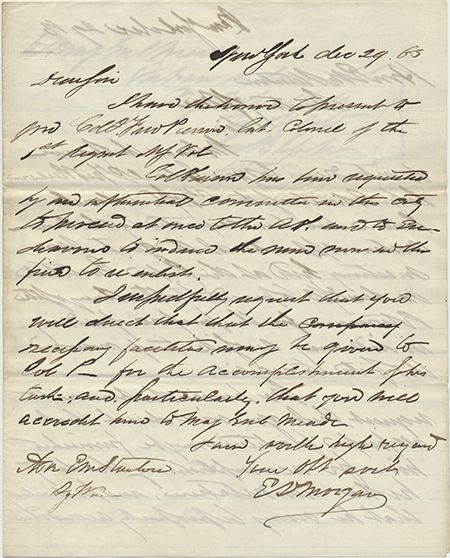 New York Dec 29. 63
Dear Sir
I have the honor to present to
you Col. Pierson Lt. Colonel of the
1st Regmt NY Vol
Col Pierson has been requested
by an influential committee in this city
to proceed at once to the AP. and to en-
deavour to induce the men now in the
field to re enlist.
I respectfully request that you
will direct that that the company
necessary facilities may be given to
Col P— for the accomplishment of his
task. and particularly, that you will
accredit him to Maj Genl Meade
I am with high regard
Hon E M Stanton Your Obt Servt
Sy War E D Morgan